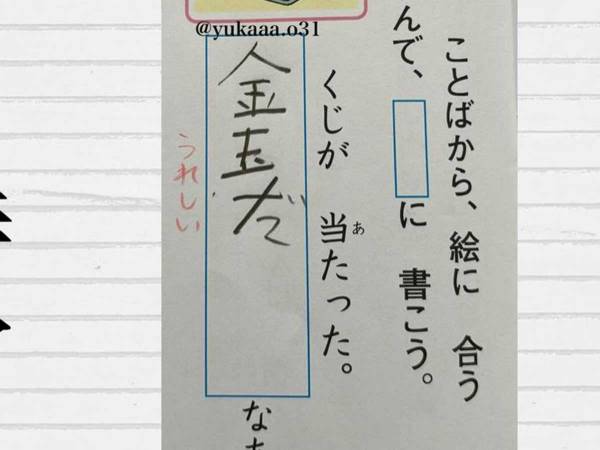 @yukaaa.o31
ことばから、絵に 合う
んで、 に 書こう。
くじが 当たった。
あ
金玉だ
うれしい
な